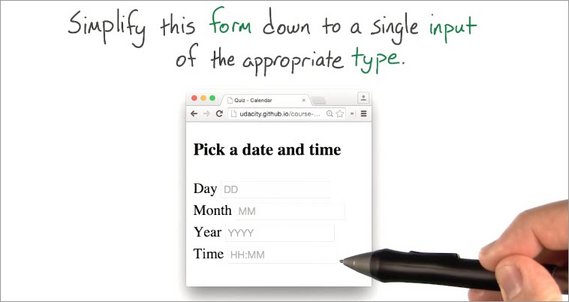 Simplify this form down to a single input
of the appropriate type.
Quiz - Calendar
udacity.github.io/course-...
Pick a date and time
Day DD
Month MM
Year YYYY
Time HH:MM